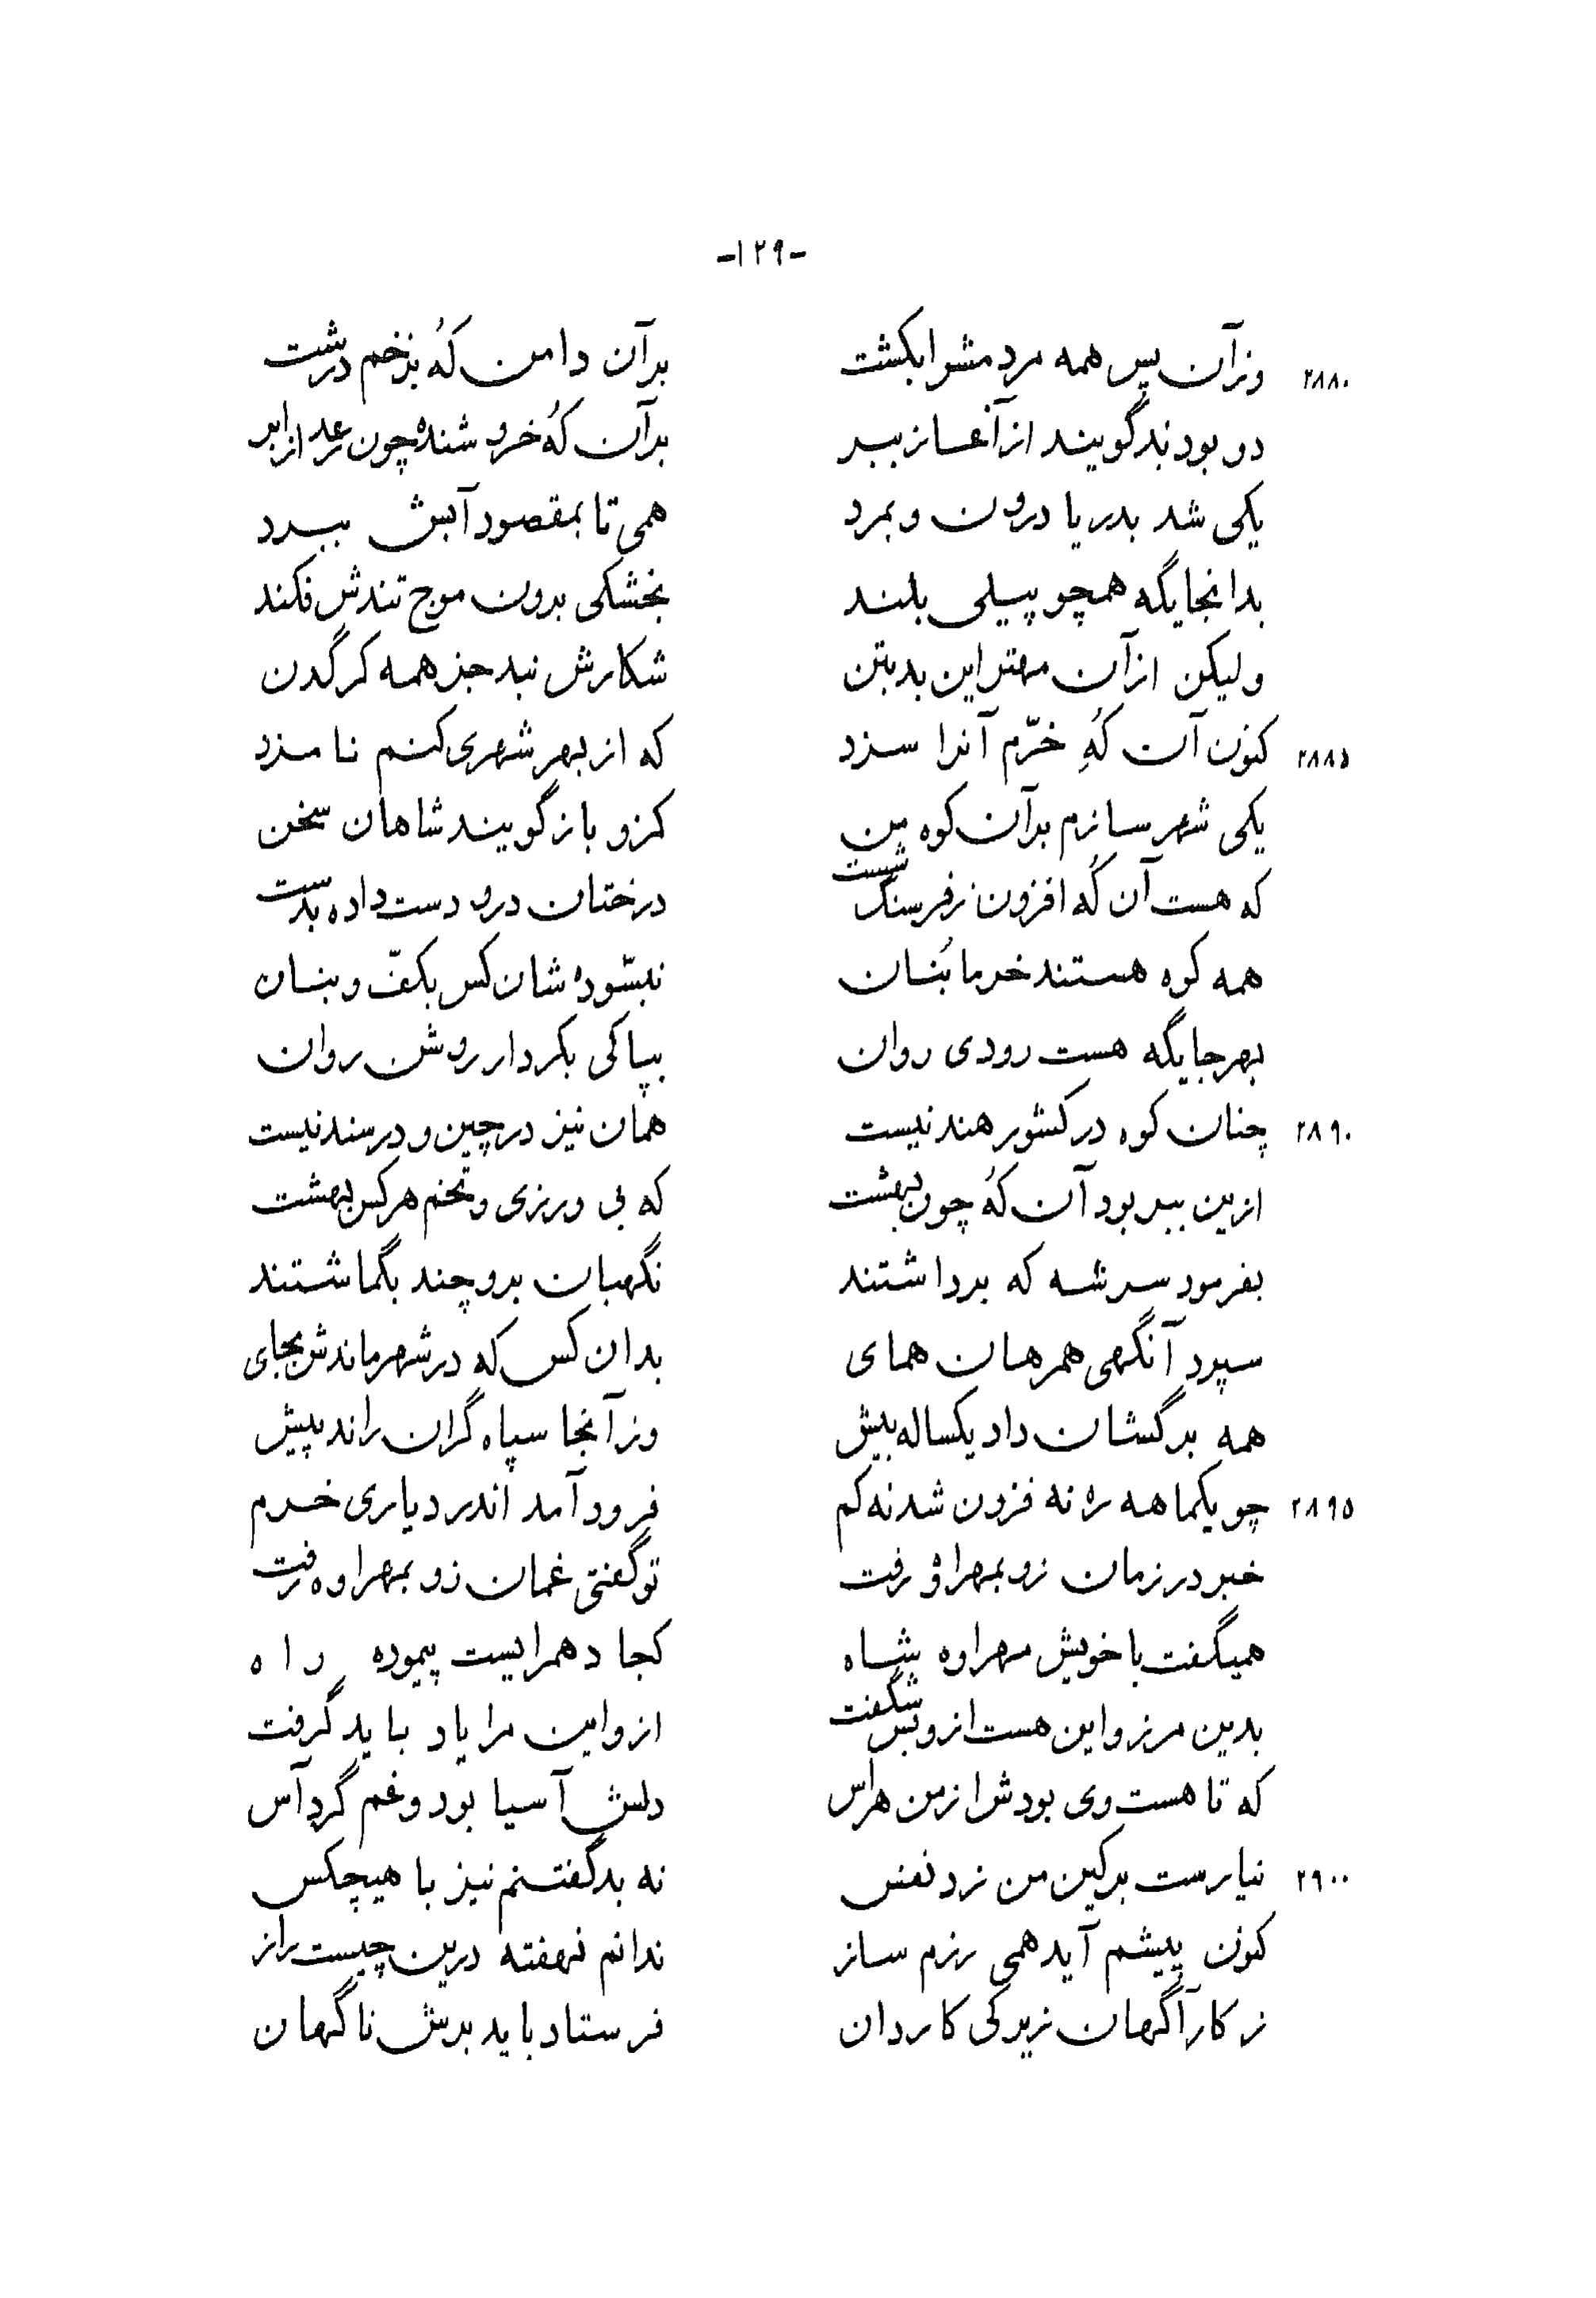 -۱۲۹-
۲۸۸۰ وزآن پس همه مردمش را بکشت برآن دامن کُه بزخم درشت
دو بودند گویند از آغاز ببر برآن کُه خروشنده چون رعد از ابر
یکی شد بدریا درون و بمرد همی تا بمقصود آبش ببرد
بدانجایگه همچو پیلی بلند بخشکی برون موج تندش فکند
ولیکن از آن مهتر این بد بتن شکارش نبد جز همه کرگدن
۲۸۸۵ کنون آن کُهِ خرّم آنرا سزد که از بهر شهری کنم نامزد
یکی شهر سازم برآن کوه من کزو باز گویند شاهان سخن
که هست آن کُه افزون ز فرسنگ شست درختان درو دست داده بدست
همه کوه هستند خرما بُنان نبسّوده شان کس بکفّ و بنان
بهر جایگه هست رودی روان بپاکی بکردار روشن روان
۲۸۹۰ چنان کوه در کشور هند نیست همان نیز در چین و در سند نیست
ازین ببر بود آن کُه چون بهشت که بی ورزی و تخم هرکس بهشت
بفرمود سرشه که برداشتند نگهبان برو چند بگماشتند
سپرد آنگهی همرهان همای بدان کس که در شهر ماندش بجای
همه برگشان داد یکساله بیش وز آنجا سپاه گران راند پیش
۲۸۹۵ چو یکماهه ره نه فزون شد نه کم فرود آمد اندر دیاری خرم
خبر در زمان زو بمهراو رفت تو گفتی غمان زو بمهراوه رفت
همیگفت با خویش مهراوه شاه کجا دهمرا یست پیموده راه
بدین مرز و این هست ازو بس شگفت ازو این مرا یاد باید گرفت
که تا هست وی بودش از من هراس دلش آسیا بود و غم گرد آس
۲۹۰۰ نیارست بر کین من زد نفس نه بد گفتنم نیز با هیچکس
کنون پیشم آید همی رزم ساز ندانم نهفته درین چیست راز
ز کار آگهان زیرکی کاردان فرستاد باید برش ناگهان